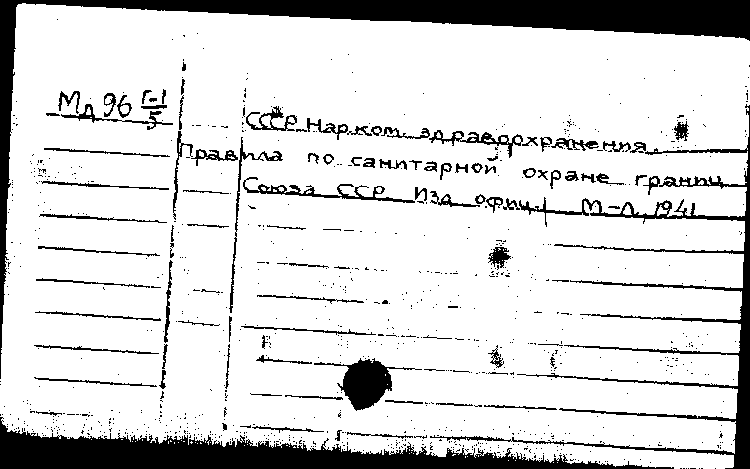 Мд 96 Г-1/5
СССР Нарком. здравоохранения.
Правила по санитарной охране границ
Союза ССР. Изд. офиц. М-Л, 1941